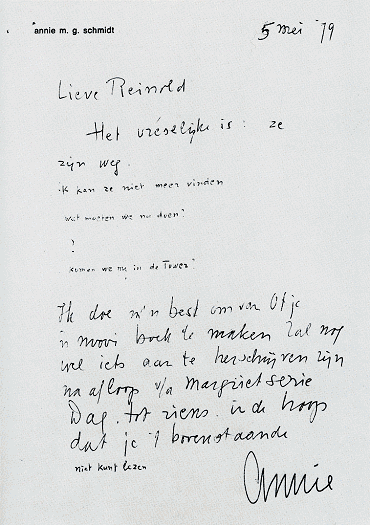 annie m. g. schmidt
5 mei '79
Lieve Reinold
Het vreselijke is: ze
zijn weg.
ik kan ze niet meer vinden
wat moeten we nu doen?
?
komen we nu in de Tower?
Ik doe m'n best om van Otje
'n mooi boek te maken Zal nog
wel iets aan te herschrijven zijn
na afloop v/d Margrietserie
Dag. tot ziens. in de hoop
dat je 't bovenstaande
niet kunt lezen
Annie